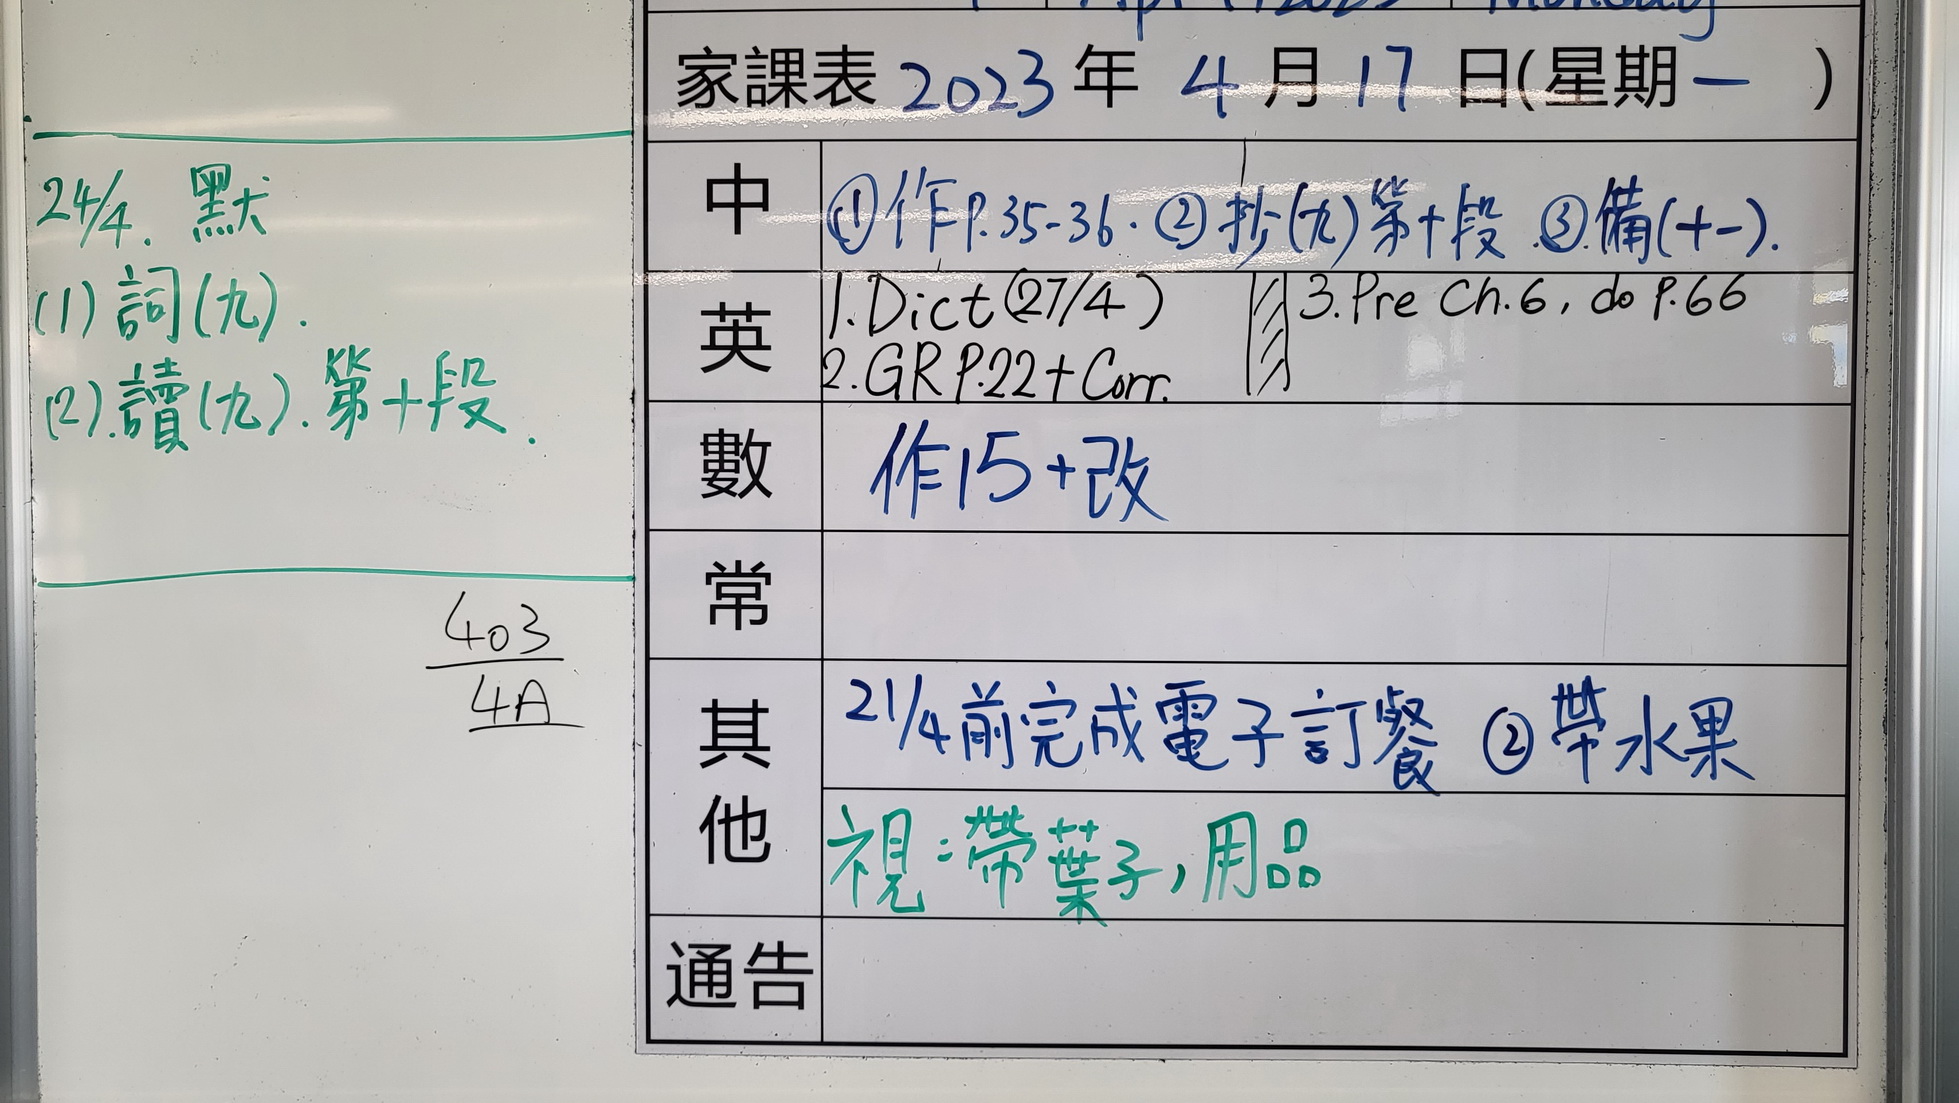 家課表 2023 年 4 月 17 日(星期一 )
24/4. 默
(1) 詞(九).
(2).讀(九).第十段.
中 ①作P.35-36. ②抄(九)第十段 ③備(十一).
英 1.Dict(27/4) 3.Pre Ch.6, do P.66
2.GR P.22+Corr.
數 作15+改
常
403
4A
其他 21/4前完成電子訂餐 ②帶水果
視:帶葉子,用品
通告